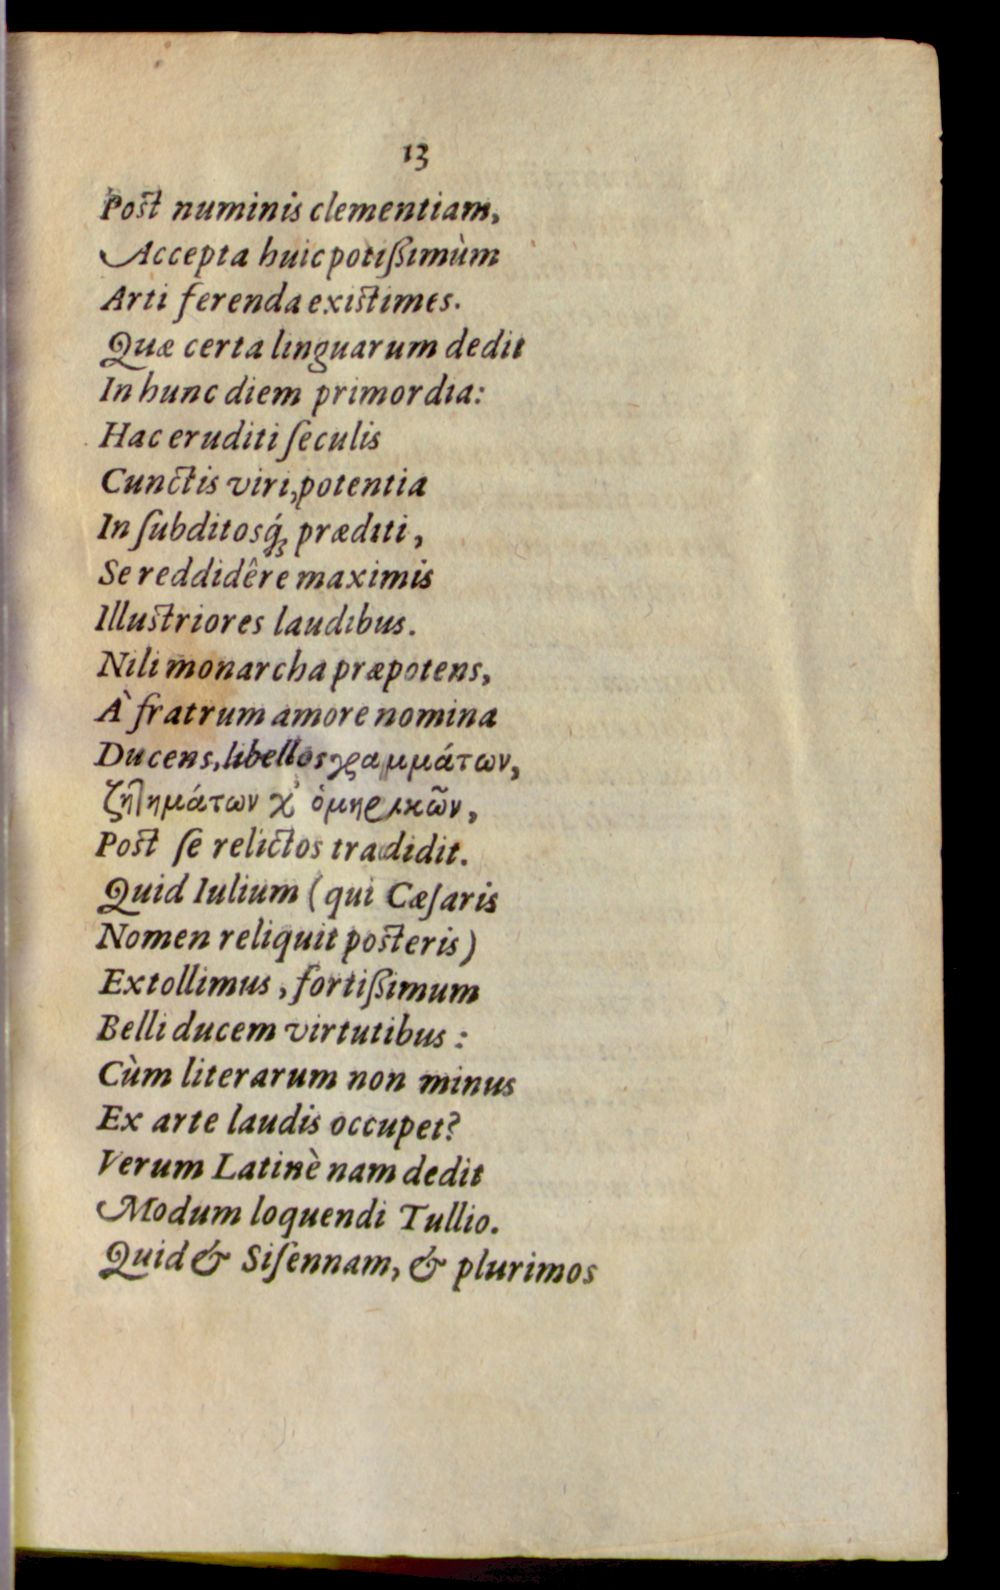 13
Post numinis clementiam,
Accepta huic potißimùm
Arti ferenda existimes.
Quæ certa linguarum dedit
In hunc diem primordia:
Hac eruditi ſeculis
Cunctis viri, potentia
In ſubditosq́ꝫ præditi,
Se reddidêre maximis
Illustriores laudibus.
Nili monarcha præpotens,
À fratrum amore nomina
Ducens, libellos γραμμάτων,
ζητημάτων χ' ὁμηρικῶν,
Post ſe relictos tradidit.
Quid Iulium (qui Cæſaris
Nomen reliquit posteris)
Extollimus, fortißimum
Belli ducem virtutibus:
Cùm literarum non minus
Ex arte laudis occupet?
Verum Latinè nam dedit
Modum loquendi Tullio.
Quid & Siſennam, & plurimos